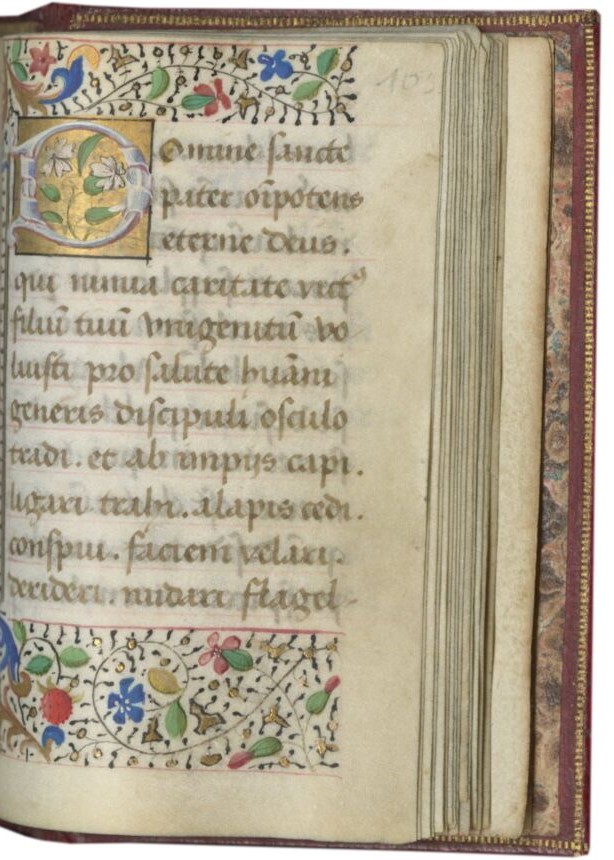 103
Domine sancte
pater oīpotens
eterne deus.
qui nimia caritate victꝰ
filiū tuū vnigenitū vo
luisti pro salute huāni
generis discipuli osculo
tradi. et ab impijs capi.
ligari trahi. alapis cedi.
conspui. faciem velari.
derideri. nudari flagel-